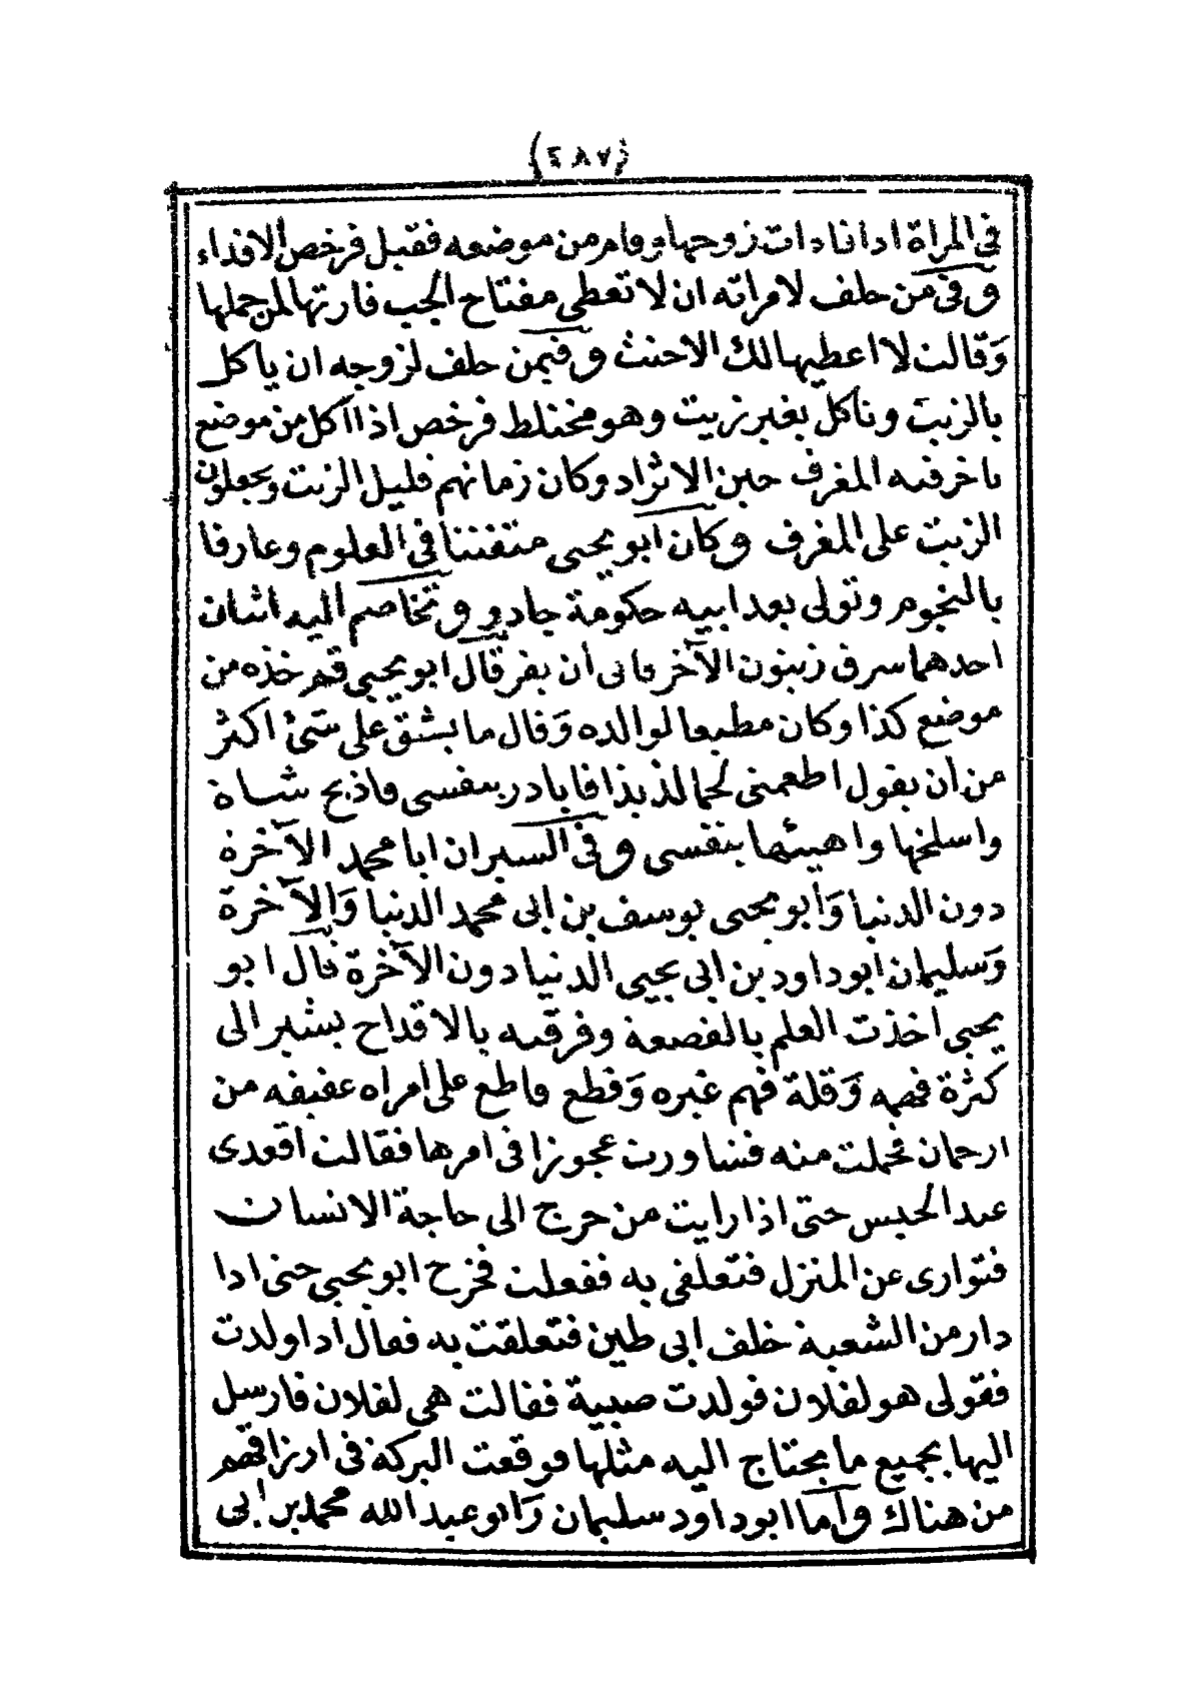 (٤٨٧)
في المراة اذا نادات زوجها وقام من موضعه فقيل فرخص الافداء
وفي من حلف لامراته ان لا تعطى مفتاح الجب فارتها لمن حملها
وقالت لا اعطيها لك الاحنث وفيمن حلف لزوجه ان ياكل
بالزيت وتاكل بغير زيت وهو مختلط فرخص اذا اكل من موضع
ناخرفيه المغرف حين الاثراد وكان زمانهم قليل الزيت ويجعلون
الزيت على المغرف وكان ابو يحيى متفننا في العلوم وعارفا
بالنجوم وتولى بعد ابيه حكومة جادو وتخاصم اليه اثنان
احدهما سرق زيتون الآخر فابى أن يقر قال ابو يحيى قم خذه من
موضع كذا وكان مطيعا لوالده وقال ما يشق على شئ اكثر
من أن يقول اطعمنى لحما لذيذا فابادر بنفسى فاذبح شاة
واسلخها واهيئها بنفسى وفى السير ان ابا محمد الآخرة
دون الدنيا وأبو يحيى يوسف بن ابى محمد الدنيا والآخرة
وسليمان ابو داود بن ابى يحيى الدنيا دون الآخرة قال ابو
يحيى اخذت العلم بالقصعة وفرقته بالاقداح يشير الى
كثرة فهمه وقلة فهم غيره وقطع قاطع على امراه عفيفه من
ارجان فحملت منه فشاورت عجوزا فى امرها فقالت اقعدى
عند الحيس حتى اذا رايت من خرج الى حاجة الانسان
فتوارى عن المنزل فتعلقى به ففعلت فخرج ابو يحيى حتى اذا
دار من الشعبة خلف ابى طين فتعلقت به فقال اذا ولدت
فقولى هو لفلان فولدت صبية فقالت هي لفلان فارسل
اليها بجميع ما يحتاج اليه مثلها فوقعت البركة فى ارزاقهم
من هناك وأما ابو داود سليمان وابو عبد الله محمد بن ابى